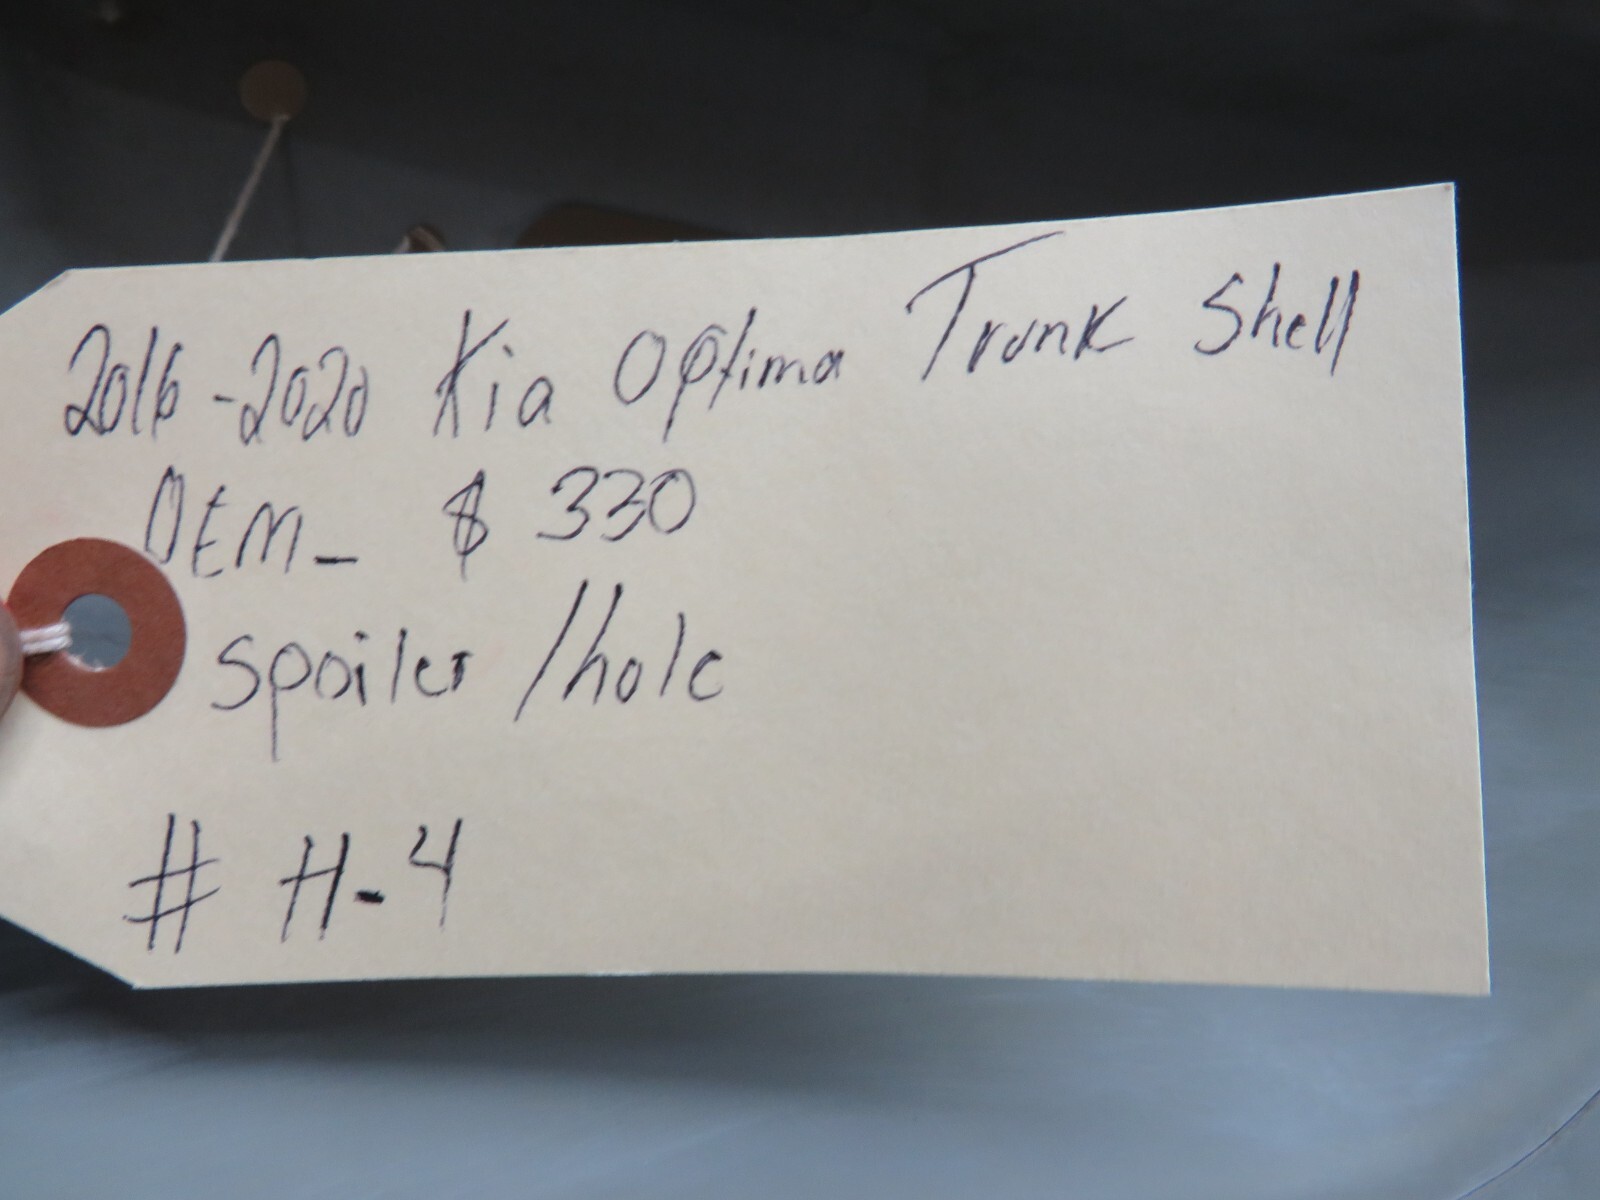 2016-2020 Kia Optima Trunk Shell
OEM- $ 330
spoiler /hole
# H-4